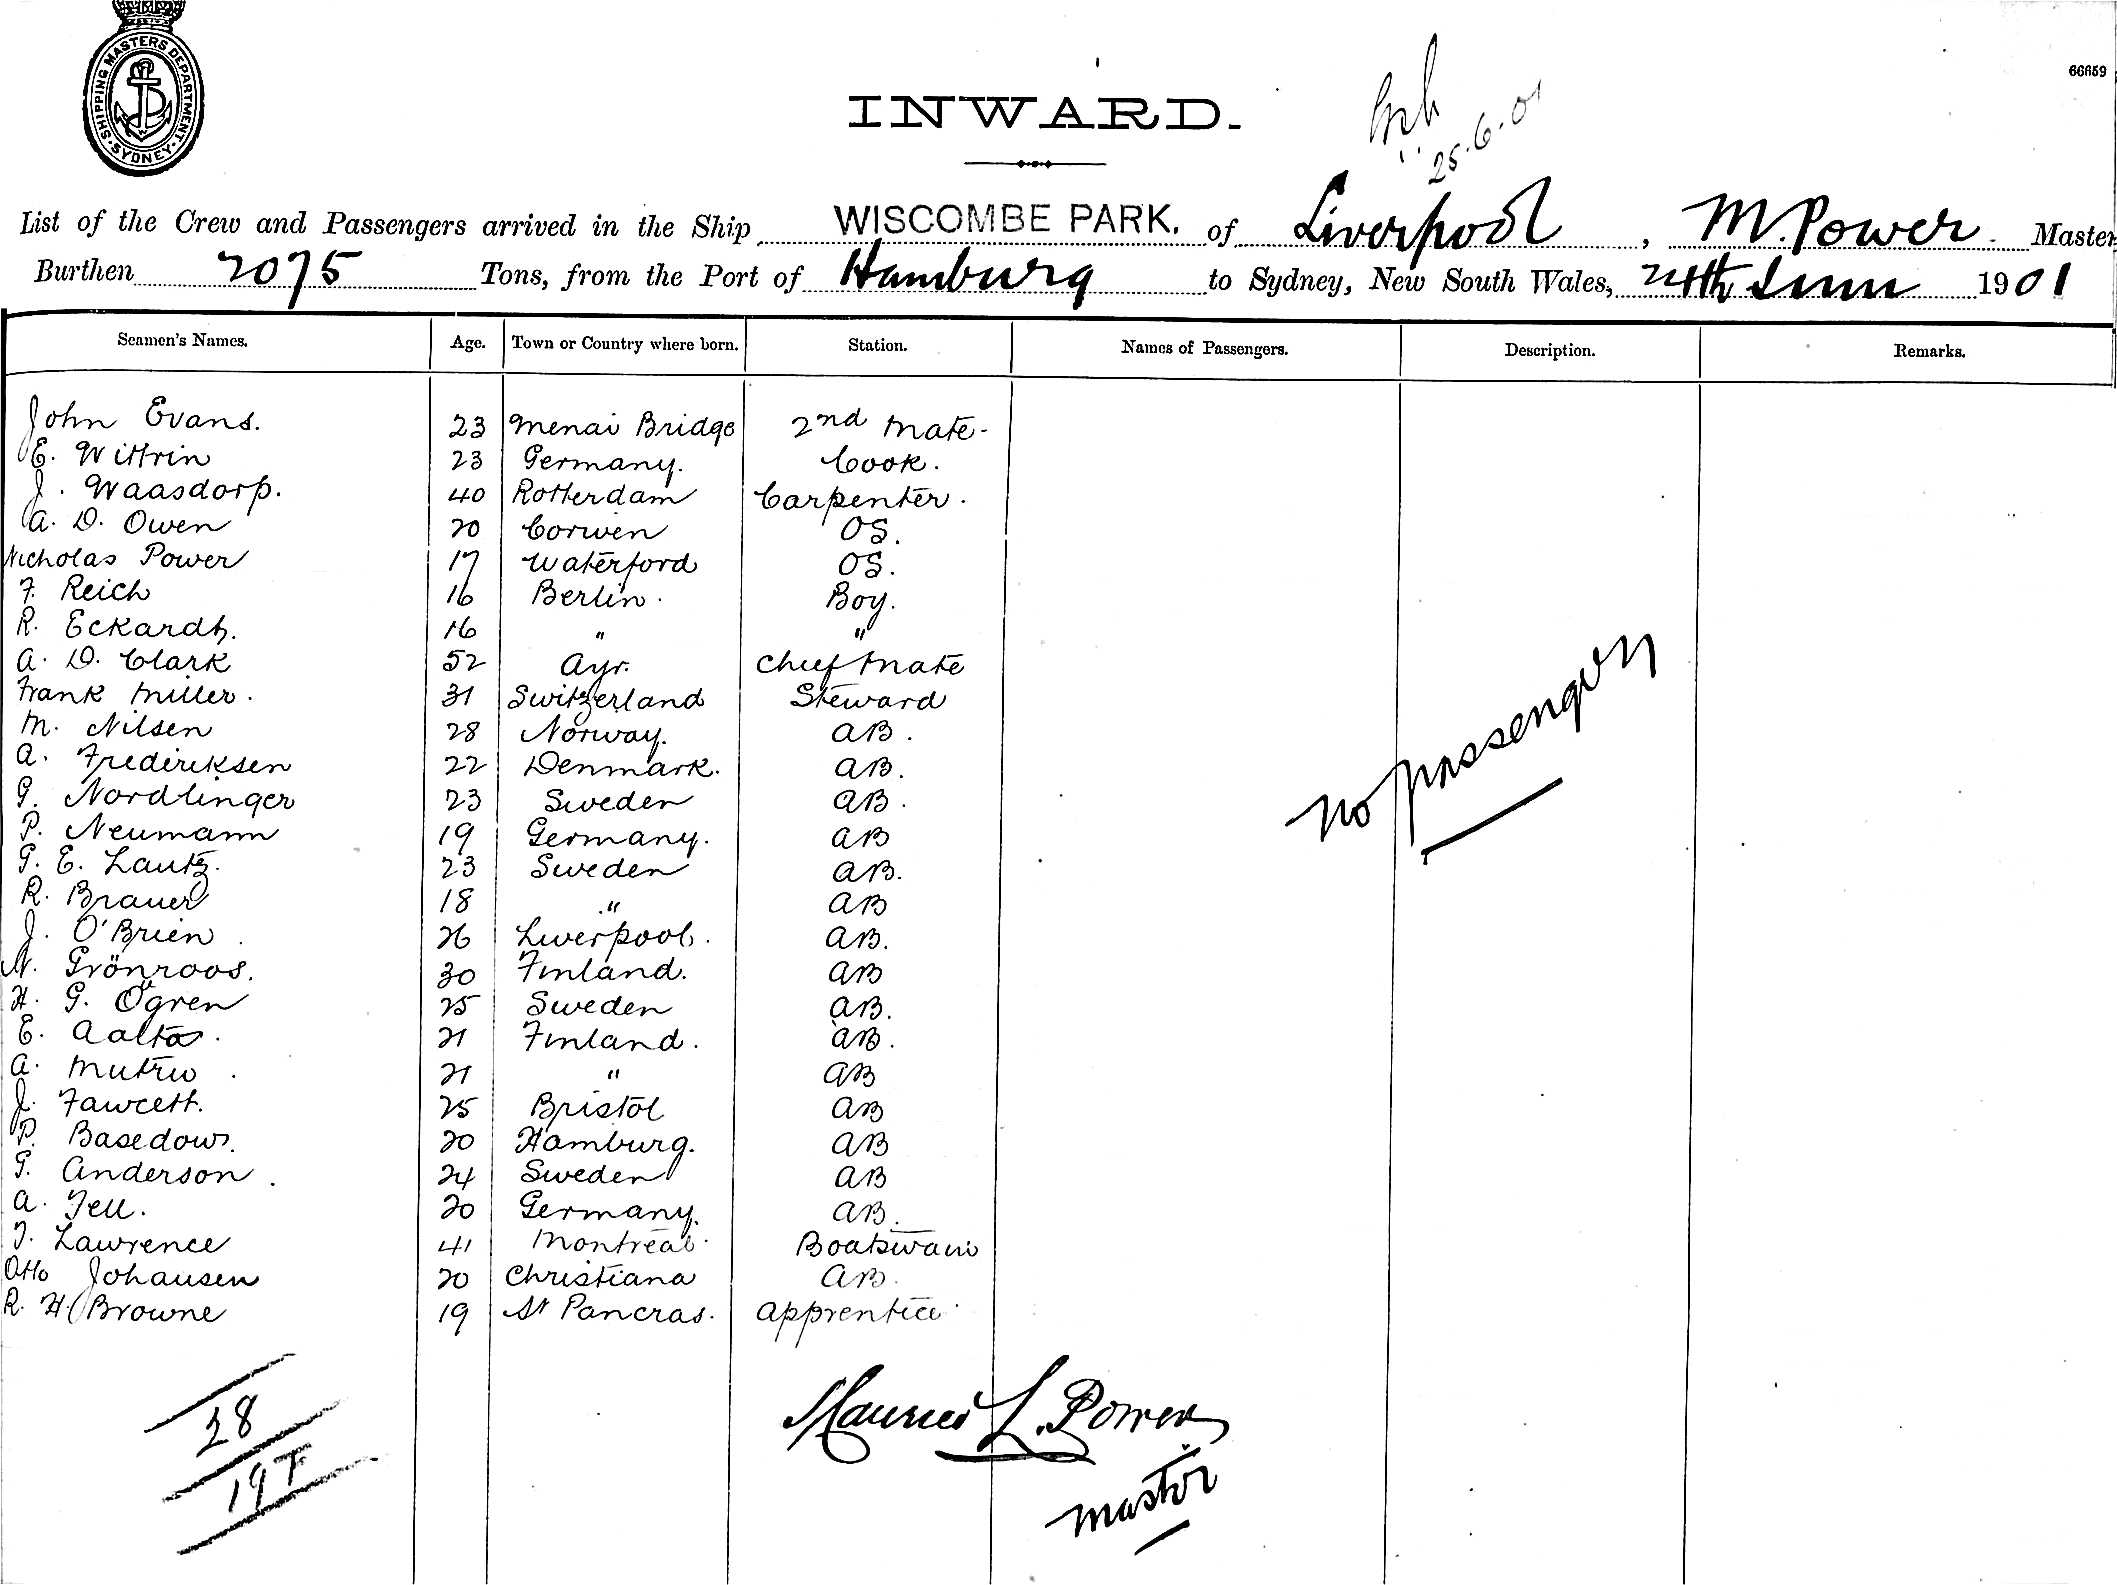 SHIPPING MASTERS DEPARTMENT
SYDNEY
66659
INWARD.
25.6.01
List of the Crew and Passengers arrived in the Ship WISCOMBE PARK. of Liverpool, M. Power. Master
Burthen 2075 Tons, from the Port of Hamburg to Sydney, New South Wales, 24th June 1901
Seamen's Names. Age. Town or Country where born. Station. Names of Passengers. Description. Remarks.
John Evans. 23 Menai Bridge 2nd Mate-
E. Wittrin 23 Germany. Cook.
J. Waasdorp. 40 Rotterdam Carpenter.
A. D. Owen 20 Corwen OS.
Nicholas Power 17 Waterford OS.
F. Reich 16 Berlin. Boy.
R. Eckardt. 16 " "
A. D. Clark 52 Ayr. Chief Mate
Frank Miller. 31 Switzerland Steward
M. Nilsen 28 Norway. AB.
A. Frederiksen 22 Denmark. AB.
G. Nordlinger 23 Sweden AB.
P. Neumann 19 Germany. AB
G. E. Lautz. 23 Sweden AB.
R. Brauer 18 " AB
J. O'Brien 26 Liverpool. AB.
N. Grönroos. 30 Finland. AB
H. G. Ögren 25 Sweden AB.
E. Aalto. 21 Finland. AB.
A. 21 " AB
J. Fawcett. 25 Bristol AB
P. Basedow. 20 Hamburg. AB
G. Anderson. 24 Sweden AB
A. Fell. 20 Germany. AB.
T. Lawrence 41 Montreal. Boatswain
Otto Johansen 20 Christiana AB.
R. H. Browne 19 St Pancras. Apprentice
No passengers
28
19 F
Maurice L. Power
Master